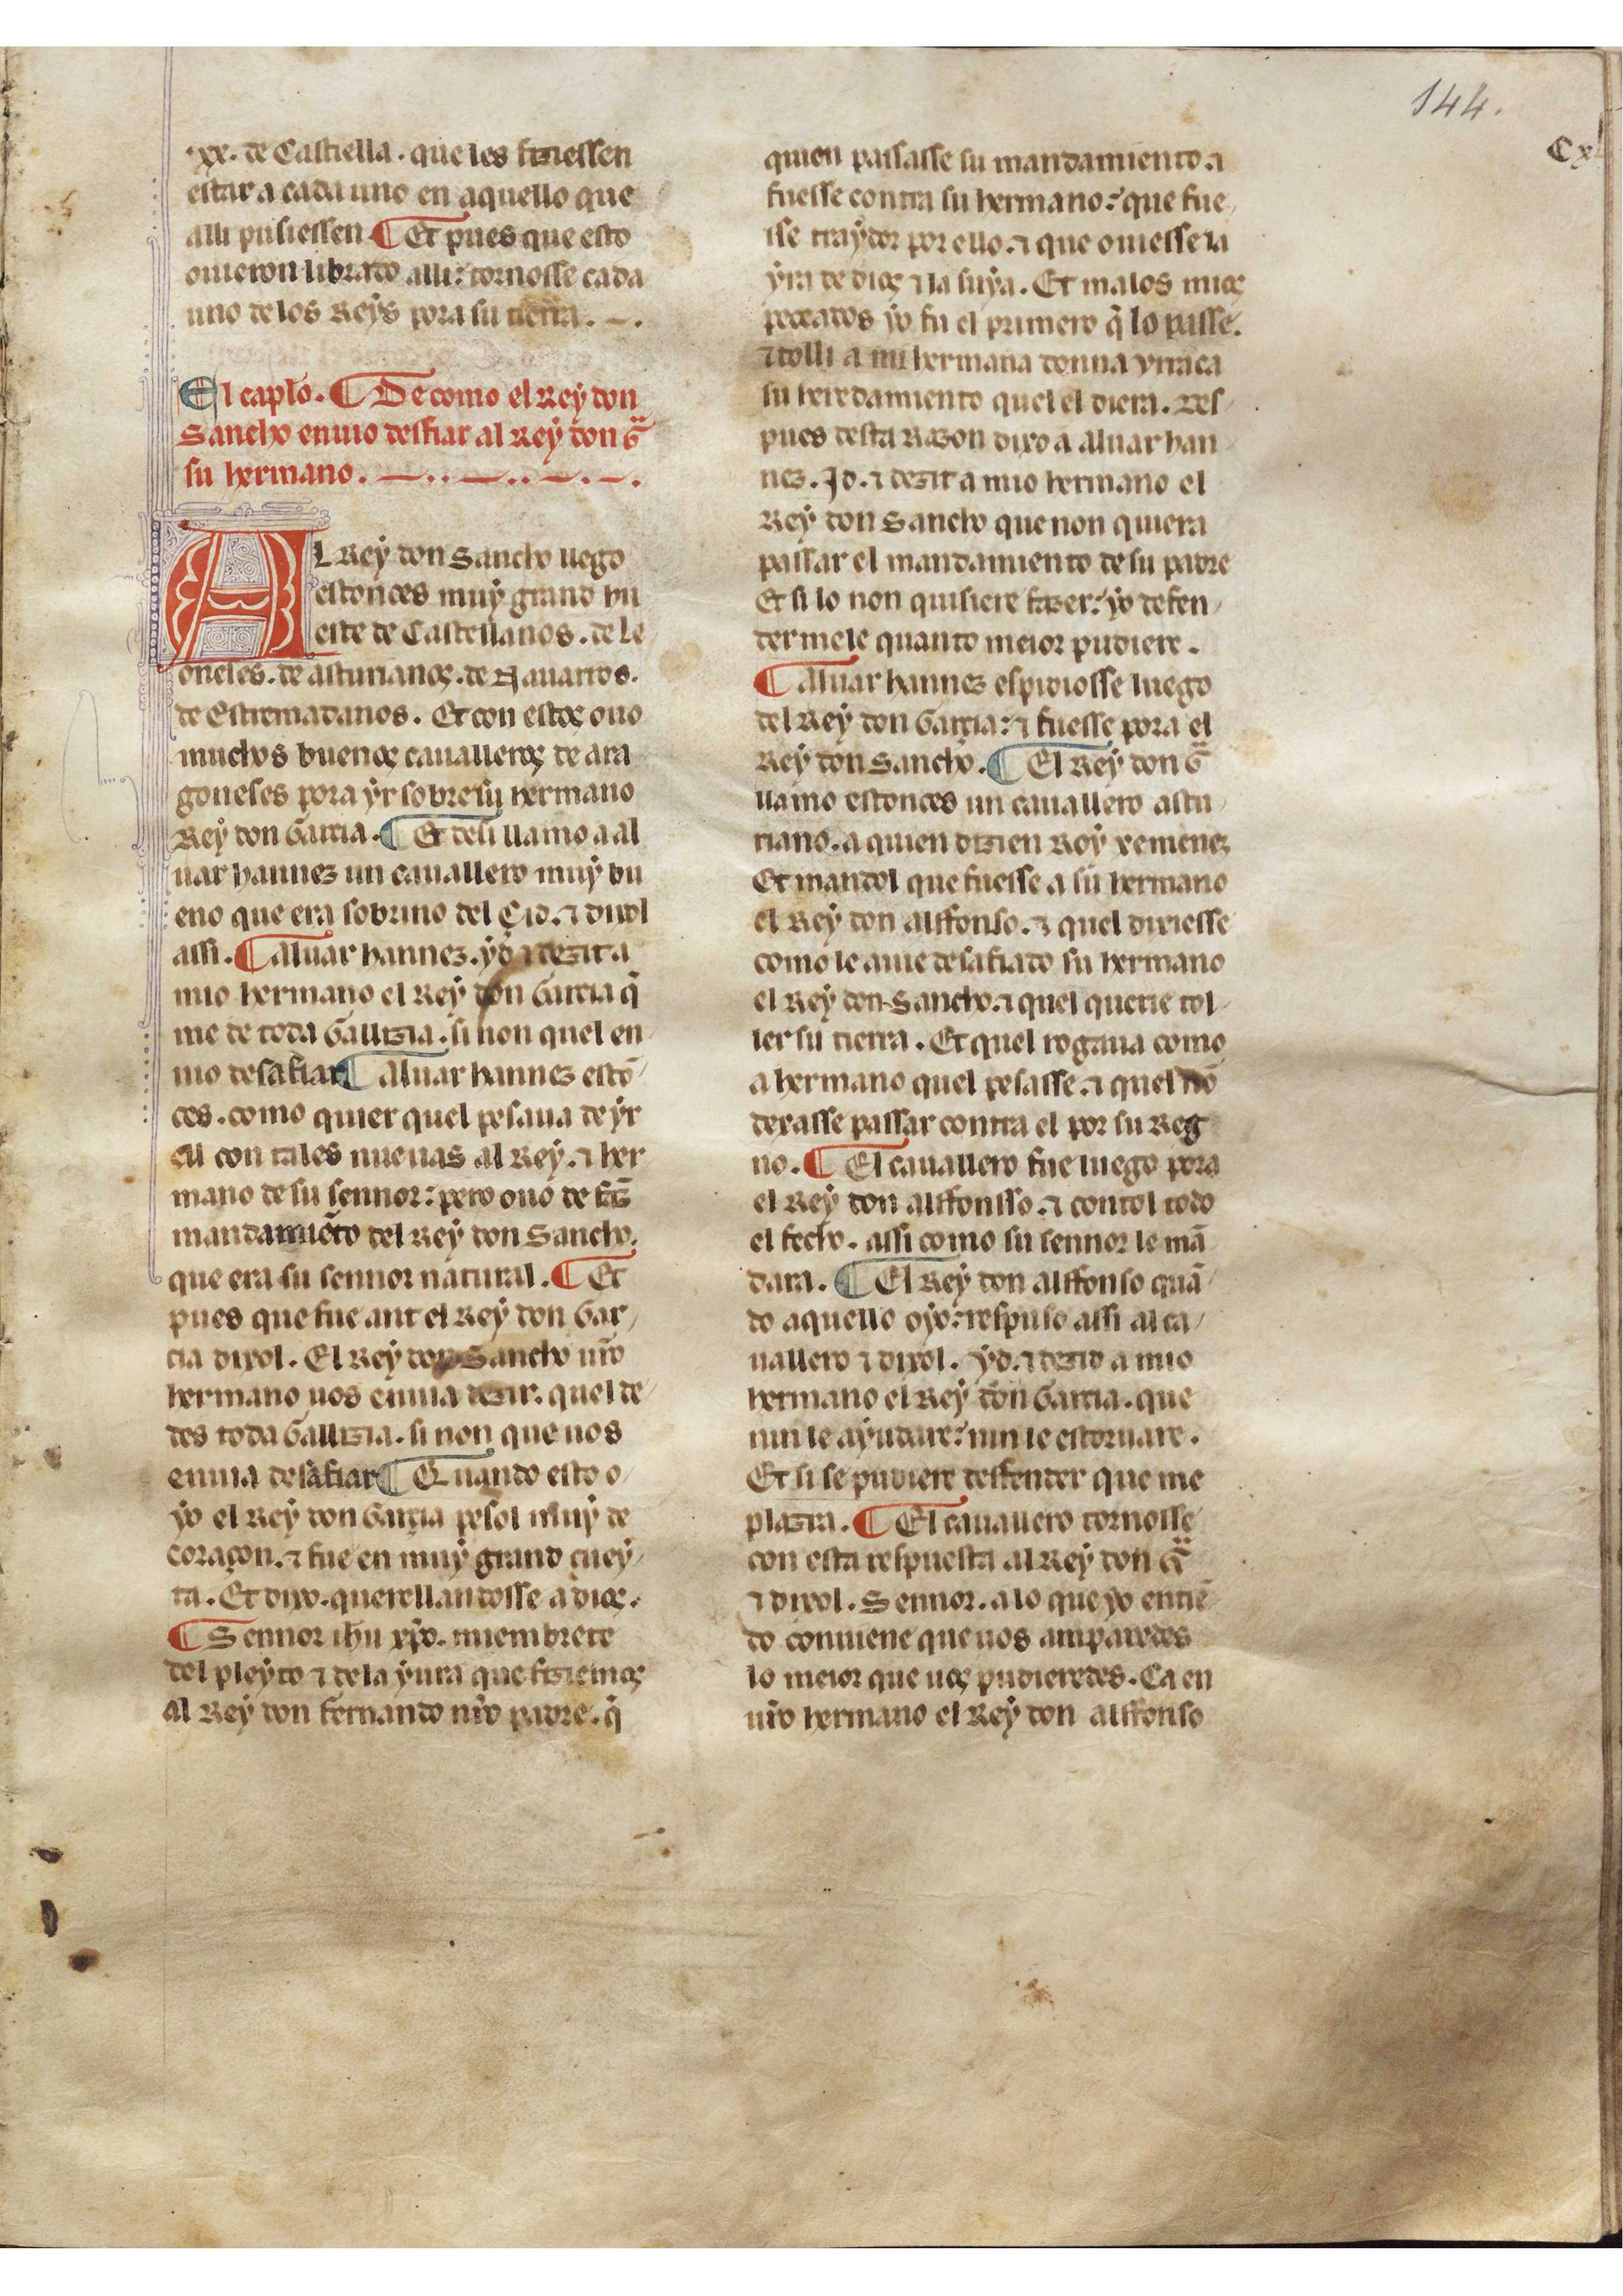 144.
Cxl
.xx. de Castiella. que les fiziessen
estar a cada uno en aquello que
alli pusiessen ¶ Et pues que esto
ouieron librado alli: tornosse cada
uno de los Reys pora su tierra. —.
El caplo. ¶ De como el Rey don
Sancho enuio desfiar al Rey don G̃
su hermano. —..—..—.—.
AL Rey don Sancho llego
estonces muy grand hu
este de Castellanos. de le
oneses. de asturianos. de Nauarros.
de Estremadanos. Et con estos ouo
muchos buenos caualleros de ara
goneses pora yr sobre su hermano
Rey don Garcia. ¶ Et desi llamo a al
uar hannez un cauallero muy bu
eno que era sobrino del Çid. ⁊ dixol
assi. ¶ Aluar hannez. yd ⁊ dezit a
mio hermano el Rey don Garcia q̃
me de toda Gallizia. si non quel en/
uio desafiar ¶ Aluar hannez estõ/
ces. como quier quel pesaua de yr
ell con tales nueuas al Rey. ⁊ her
mano de su sennor: pero ouo de fer̃
mandamiẽto del Rey don Sancho.
que era su sennor natural. ¶ Et
pues que fue ant el Rey don Gar/
cia dixol. El Rey don Sancho ur̃o
hermano uos enuia dezir. quel de/
des toda Gallizia. si non que uos
enuia desafiar ¶ Quando esto o/
yo el Rey don Garçia pesol muy de
coraçon. ⁊ fue en muy grand cuey/
ta. Et dixo. querellandosse a dios.
¶ Sennor ihu xp̃o. miembrete
del pleyto ⁊ de la yura que fiziemos
al Rey don fernando nr̃o padre. q̃
quien passasse su mandamiento ⁊
fuesse contra su hermano: que fue/
sse traydor por ello. ⁊ que ouiesse la
yra de dios ⁊ la suya. Et malos mios
peccados yo fu el primero q̃ lo passe.
⁊ tolli a mi hermana donna Vrraca
su heredamiento quel el diera. Des/
pues desta Razon dixo a aluar han/
nez. Jd. ⁊ dezit a mio hermano el
Rey don Sancho que non quiera
passar el mandamiento de su padre
Et si lo non quisiere fazer: yo defen/
dermele quanto meior pudiere.
¶ Aluar hannez espidiosse luego
del Rey don Garçia: ⁊ fuesse pora el
Rey don Sancho. ¶ El Rey don G̃
llamo estonces un cauallero astu/
riano. a quien dizien Roy xemenez
Et mandol que fuesse a su hermano
el Rey don alffonso. ⁊ quel dixiesse
como le auie desafiado su hermano
el Rey don Sancho. ⁊ quel querie tol/
ler su tierra. Et quel rogaua como
a hermano quel pesasse. ⁊ quel nõ
dexasse passar contra el por su Reg
no. ¶ El cauallero fue luego pora
el Rey don alffonsso. ⁊ contol todo
el fecho. assi como su sennor le mã
dara. ¶ El Rey don alffonso quã/
do aquello oyo: respuso assi al ca/
uallero ⁊ dixol. Yd. ⁊ dezid a mio
hermano el Rey don Garcia. que
nin le ayudare: nin le estoruare.
Et si se pudiere deffender que me
plazra. ¶ El cauallero tornosse
con esta respuesta al Rey don G̃
⁊ dixol. Sennor. a lo que yo entiẽ
do conuiene que uos amparedes
lo meior que uos pudieredes. Ca en
ur̃o hermano el Rey don alffonso